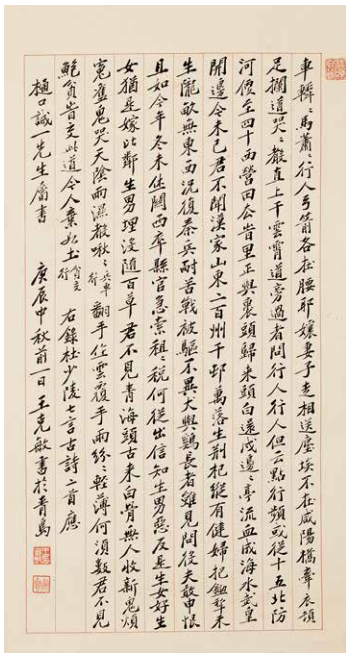 車轔〻馬蕭〻行人弓箭各在腰耶孃妻子走相送塵埃不在咸陽橋牽衣頓
足攔道哭〻聲直上干雲霄道旁過者問行人行人但云點行頻或從十五北防
河便至四十西營田去旹里正與裹頭歸來頭白還戍邊〻亭流血成海水武皇
開邊意未已君不聞漢家山東二百州千邨萬落生荊杞縱有健婦把鋤犂禾
生隴畝無東西況復秦兵耐苦戰被驅不異犬與鷄長者雖見問役夫敢申恨
且如今年冬未休關西卒縣官急索租〻稅何從出信知生男惡反是生女好生
女猶是嫁比鄰生男埋沒隨百草君不見青海頭古來白骨無人收新鬼煩
冤舊鬼哭天陰雨濕聲啾〻兵車行 翻手作雲覆手雨紛〻輕薄何須數君不見
鮑貧旹交此道今人棄如土貧交行 右錄杜少陵七言古詩二首應
樋口誠一先生屬書 庚辰中秋前一日王克敏書於青島